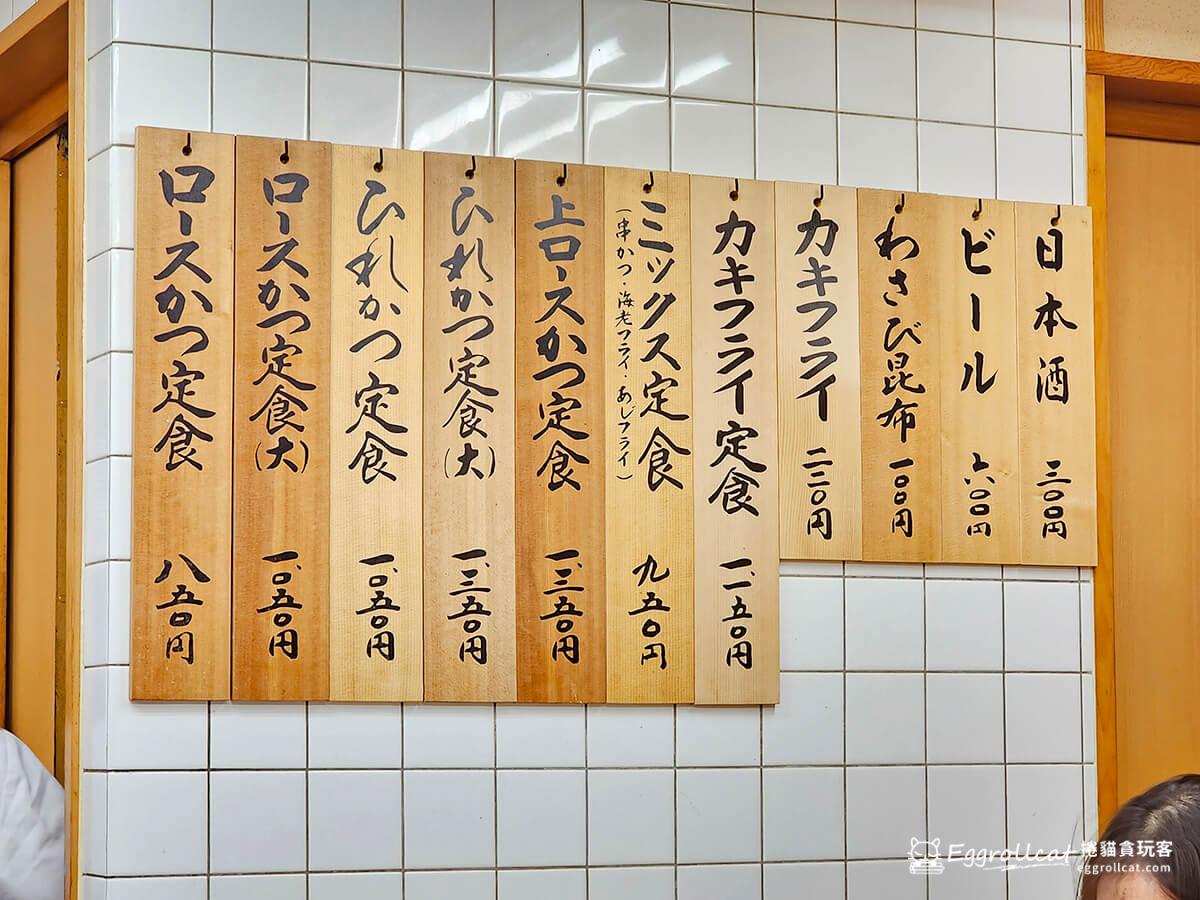 日本酒 三〇〇円
ビール 六〇〇円
わさび昆布 一〇〇円
カキフライ 二二〇円
カキフライ定食 一、一五〇円
ミックス定食 九五〇円
(串かつ・海老フライ・あじフライ)
上ロースかつ定食 一、三五〇円
ひれかつ定食(大) 一、三五〇円
ひれかつ定食 一、〇五〇円
ロースかつ定食(大) 一、〇五〇円
ロースかつ定食 八五〇円
Eggrollcat 捲貓貪玩客
eggrollcat.com